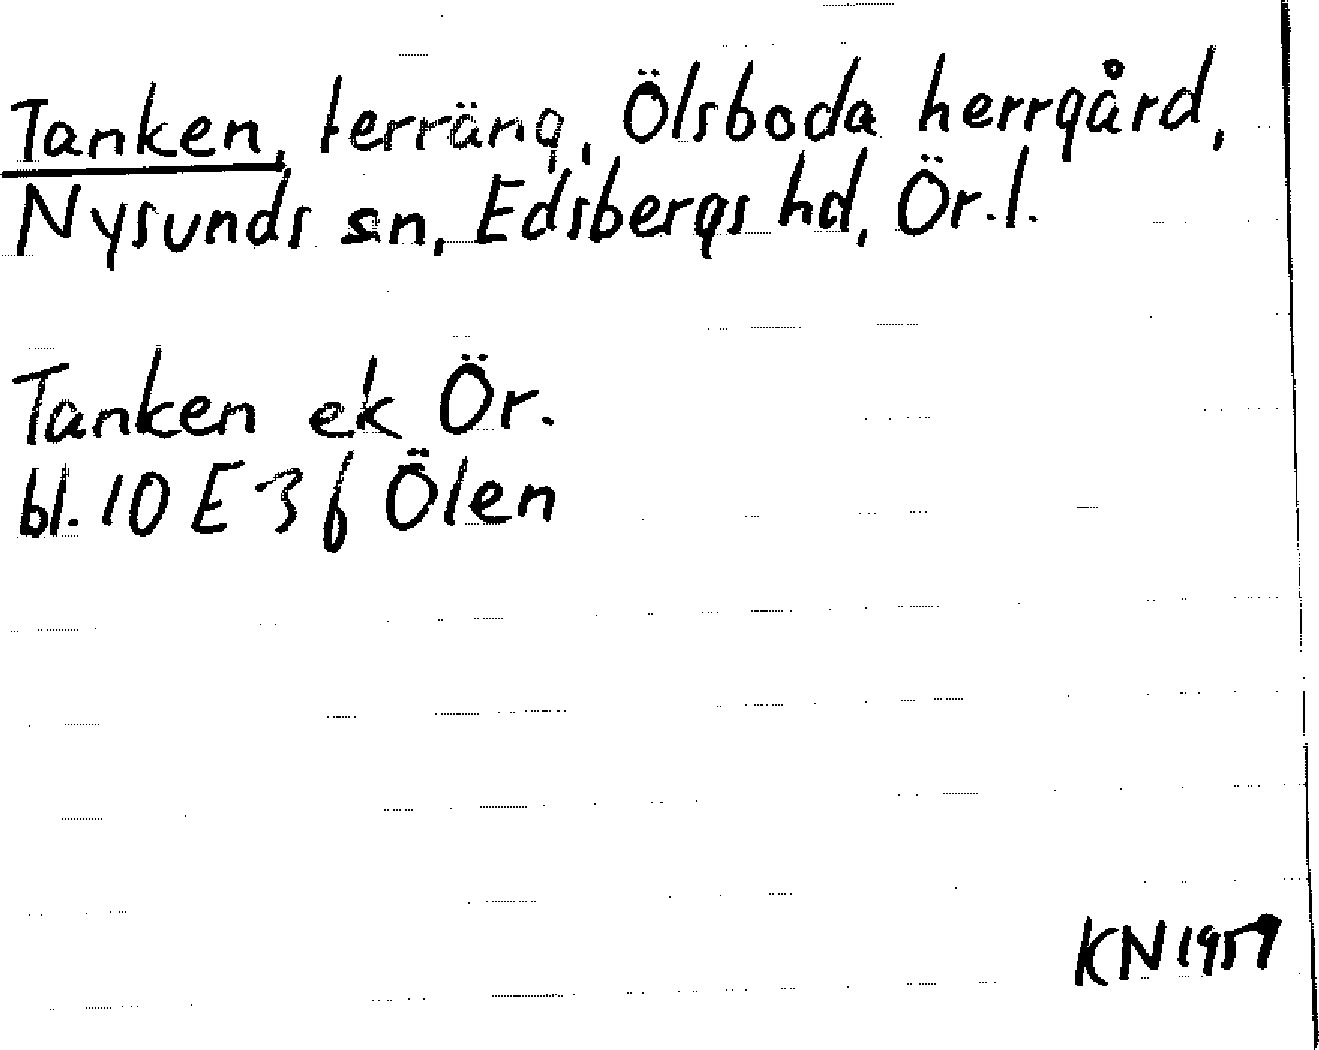 Tanken, terräng, Ölsboda herrgård,
Nysunds sn, Edsbergs hd, Ör.l.
Tanken ek Ör.
bl. 10 E 3 f Ölen
KN 1959